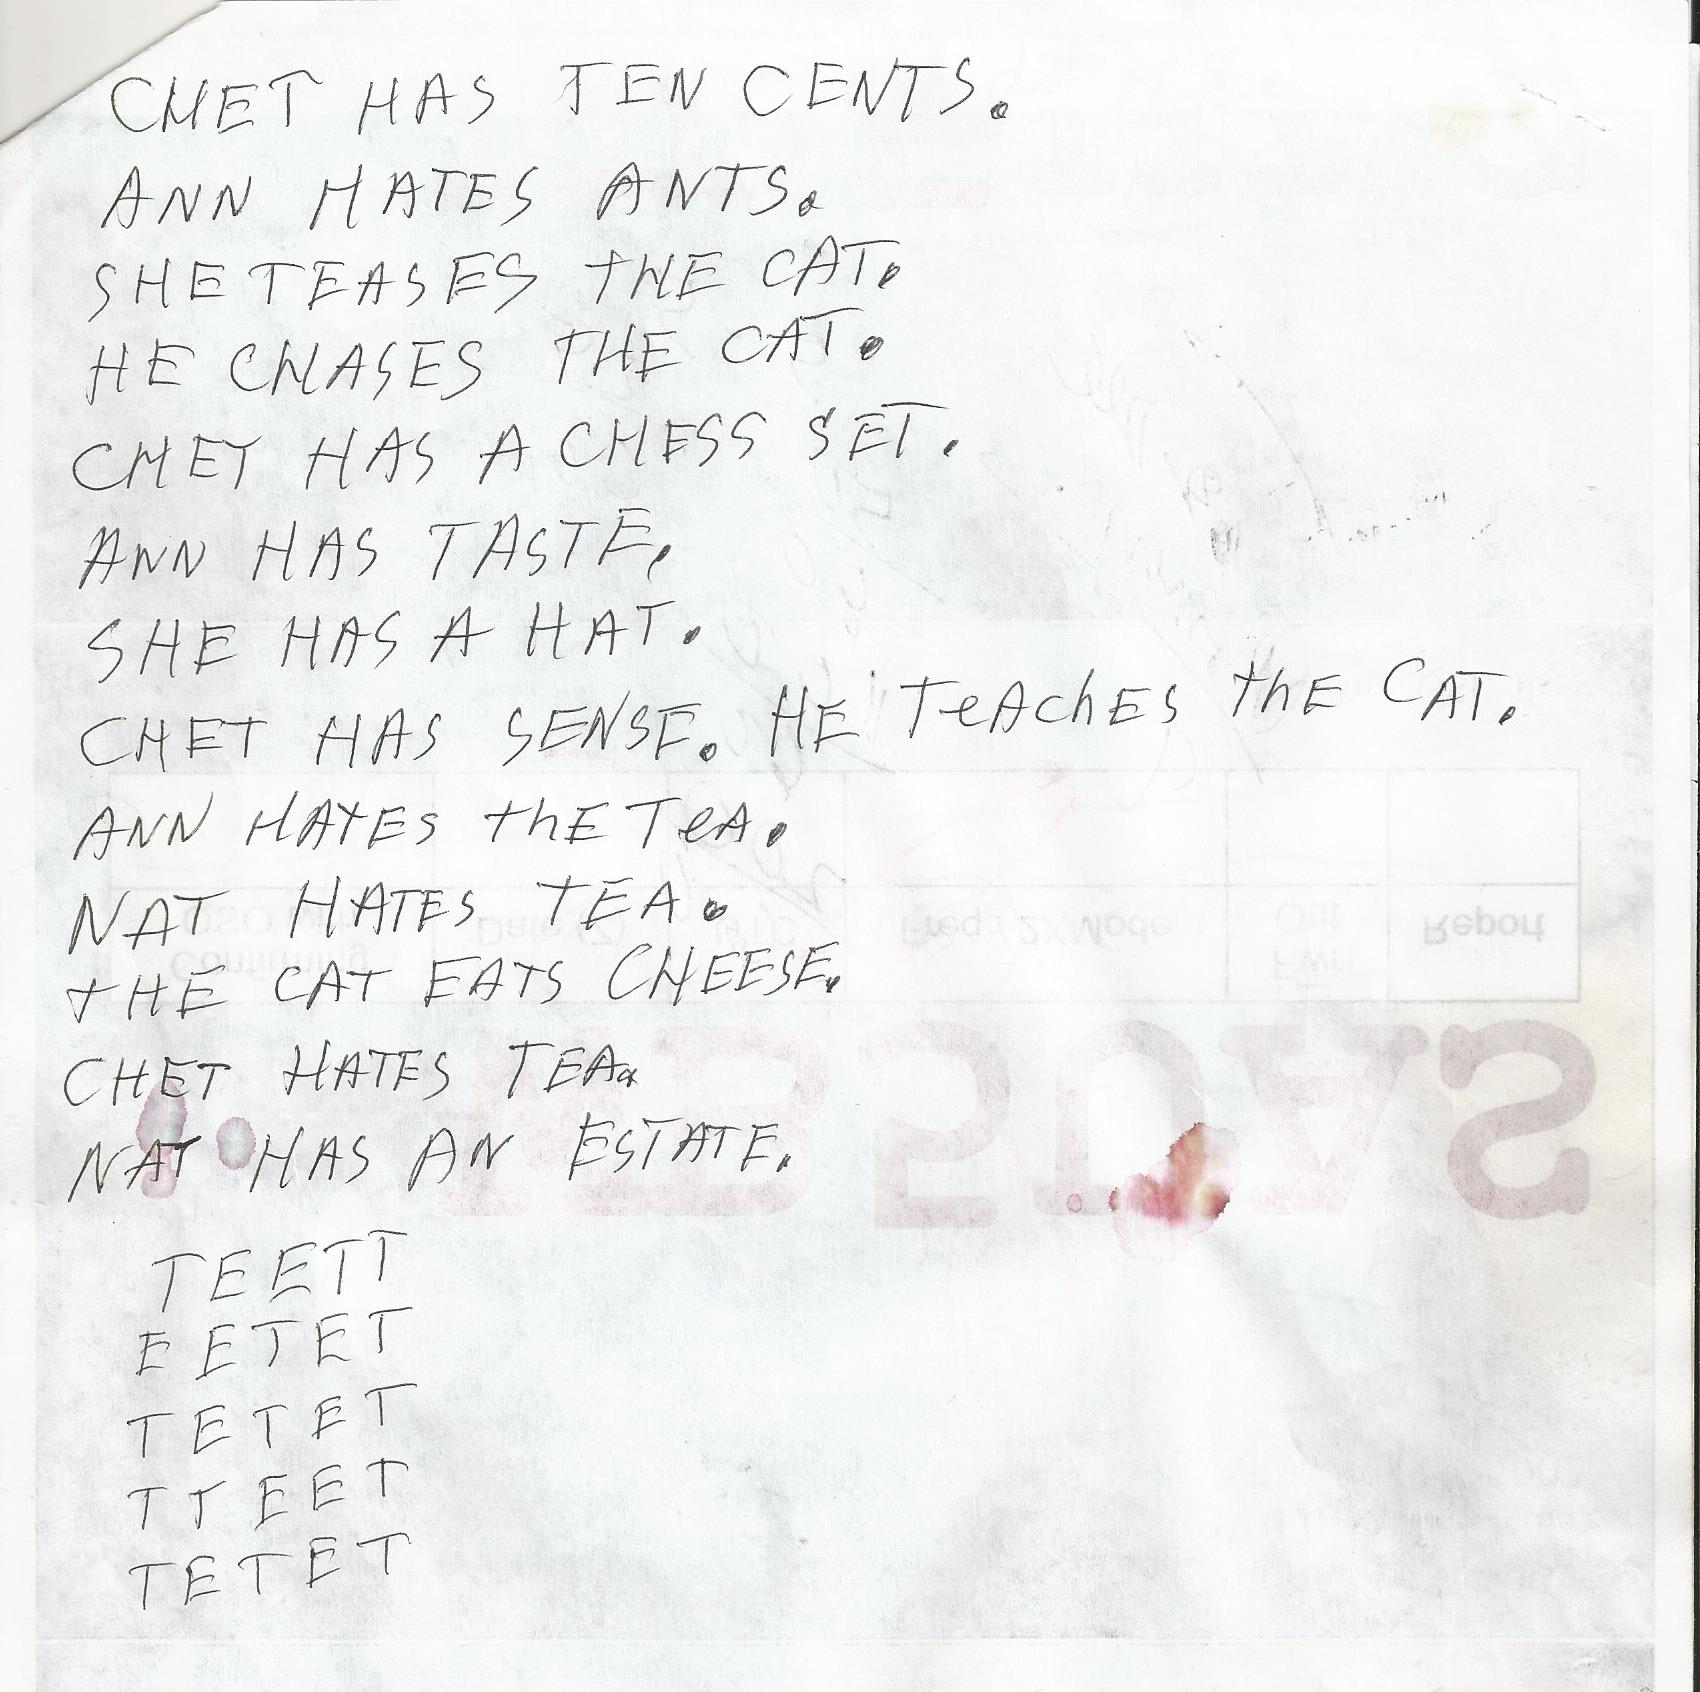 CHET HAS TEN CENTS.
ANN HATES ANTS.
SHE TEASES tHE CAT.
HE CHASES THE CAT.
CHET HAS A CHESS SET.
ANN HAS TASTE.
SHE HAS A HAT.
CHET HAS SENSE. HE TeAchES thE CAT.
ANN HAtES thE TeA.
NAT HATES TEA.
tHE CAT EATS CHEESE.
CHET HATES TEA.
NAT HAS AN ESTATE.
TEETT
EETET
TETET
TTEET
TETET
Confirming QSO With
Date (Z)
Freq./ 2X Mode
Pwr Out
Report